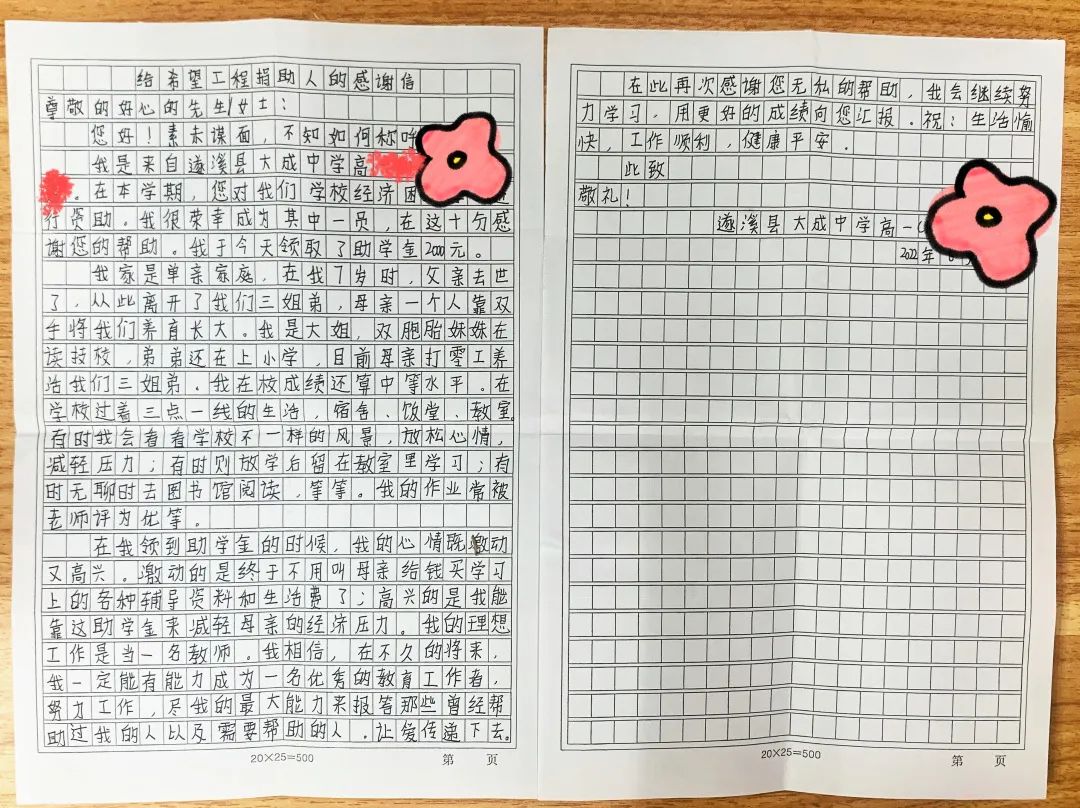 给希望工程捐助人的感谢信
尊敬的好心的先生/女士：
您好！素未谋面，不知如何称
我是来自遂溪县大成中学高
。在本学期，您对我们学校经济困
行资助。我很荣幸成为其中一员，在这十分感
谢您的帮助。我于今天领取了助学金2000元。
我家是单亲家庭，在我7岁时，父亲去世
了，从此离开了我们三姐弟，母亲一个人靠双
手将我们养育长大。我是大姐，双胞胎妹妹在
读技校，弟弟还在上小学，目前母亲打零工养
活我们三姐弟。我在校成绩还算中等水平。在
学校过着三点一线的生活，宿舍、饭堂、教室。
有时我会看看学校不一样的风景，放松心情，
减轻压力；有时则放学后留在教室里学习；有
时无聊时去图书馆阅读，等等。我的作业常被
老师评为优等。
在我领到助学金的时候，我的心情既激动
又高兴。激动的是终于不用叫母亲给钱买学习
上的各种辅导资料和生活费了；高兴的是我能
靠这助学金来减轻母亲的经济压力。我的理想
工作是当一名教师。我相信，在不久的将来，
我一定能有能力成为一名优秀的教育工作者，
努力工作，尽我的最大能力来报答那些曾经帮
助过我的人以及需要帮助的人。让爱传递下去。
20×25=500 第 页
在此再次感谢您无私的帮助，我会继续努
力学习，用更好的成绩向您汇报。祝：生活愉
快，工作顺利，健康平安。
此致
敬礼！
遂溪县大成中学高一
2022年
20×25=500 第 页